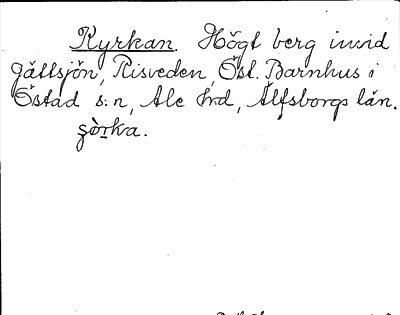 Kyrkan. Högt berg invid
Gällsjön, Risveden, Öst. Barnhus i
Östad s:n, Ale hrd, Älfsborgs län.